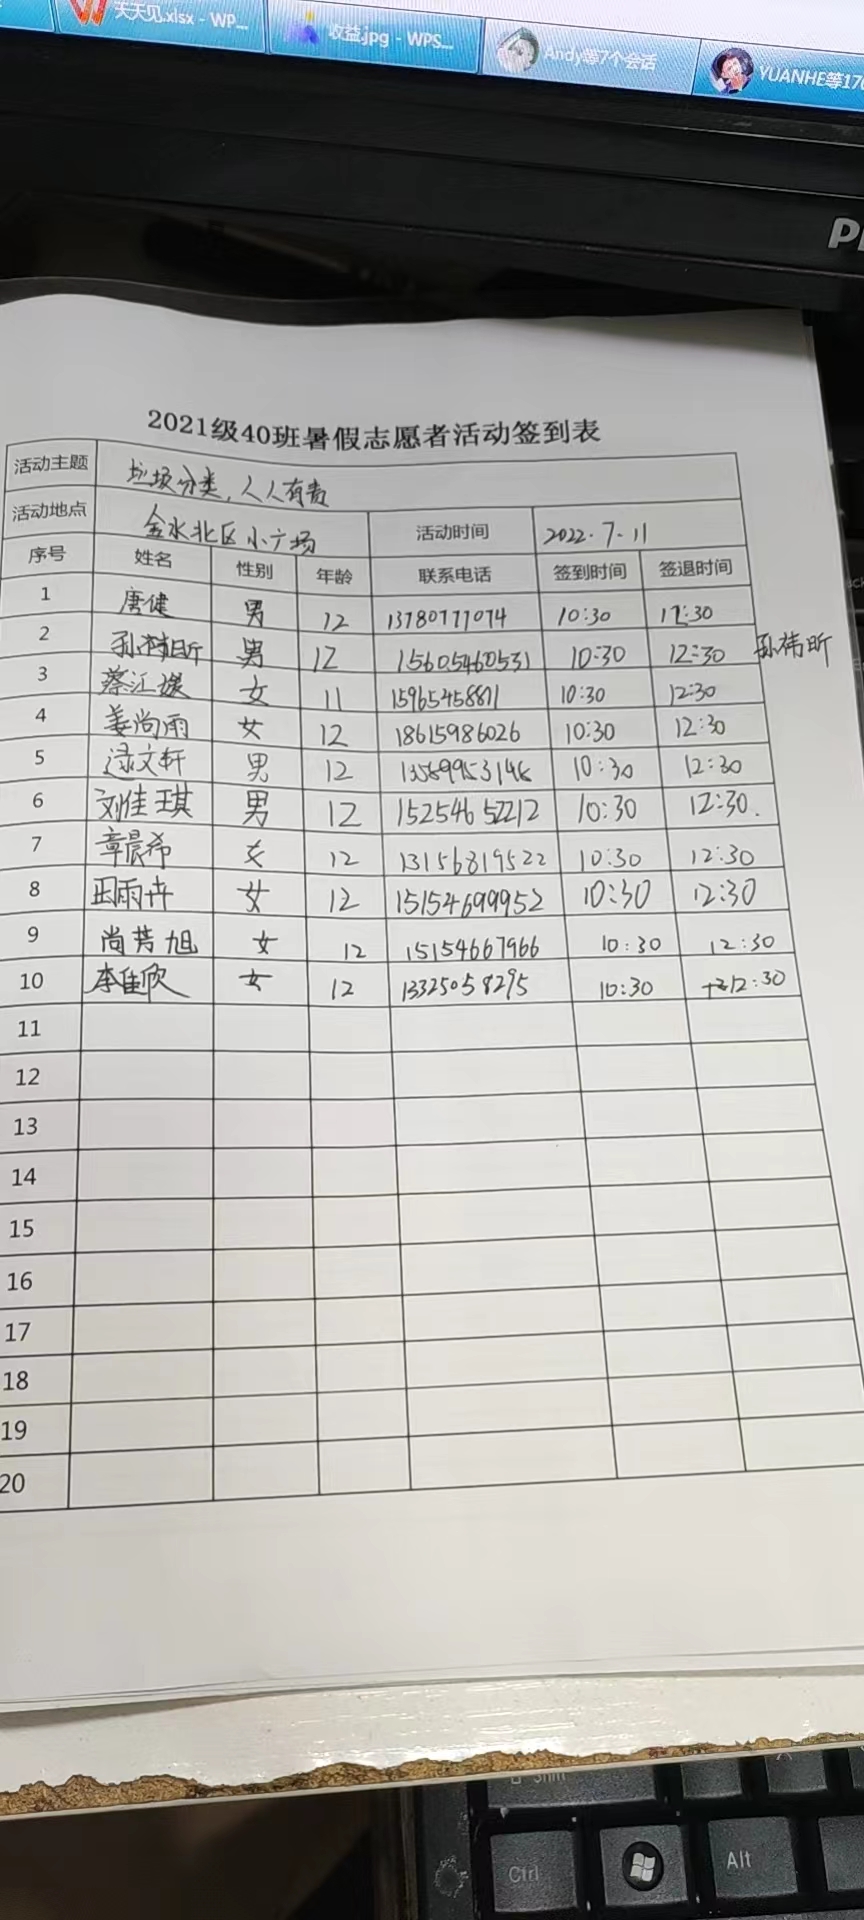 天天见.xlsx - WP...
收益.jpg - WPS...
Andy等7个会话
YUANHE等17
2021级40班暑假志愿者活动签到表
活动主题 垃圾分类，人人有责
活动地点 金水北区小广场 活动时间 2022.7.11
序号 姓名 性别 年龄 联系电话 签到时间 签退时间
1 唐健 男 12 13780777074 10:30 12:30
2 孙祎昕 男 12 15605460531 10:30 12:30 孙祎昕
3 蔡江媛 女 11 10:30 12:30
4 姜尚雨 女 12 18615986026 10:30 12:30
5 文轩 男 12 10:30 12:30
6 刘佳琪 男 12 15254652212 10:30 12:30.
7 章晨希 女 12 13156819522 10:30 12:30
8 田雨卉 女 12 15154699952 10:30 12:30
9 尚芳旭 女 12 15154667966 10:30 12:30
10 李佳欣 女 12 13325058295 10:30 12:30
11
12
13
14
15
16
17
18
19
20
Ctrl
Alt